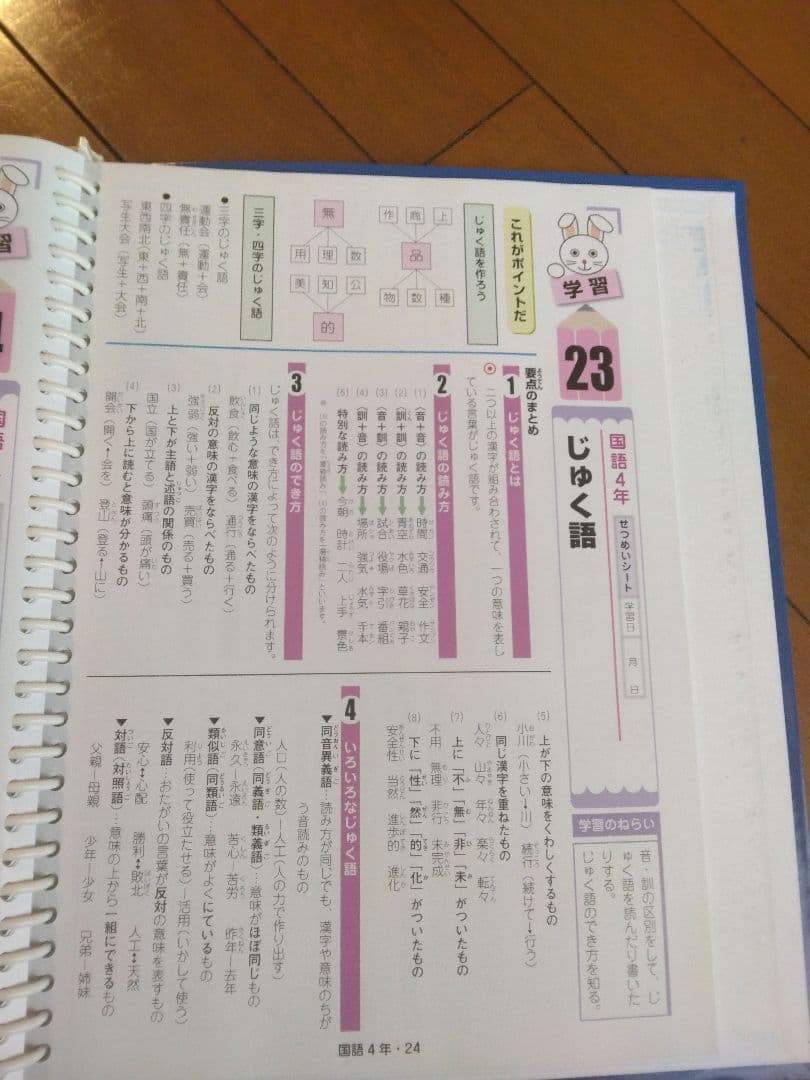 学習
23
国語4年
せつめいシート
学習日 月 日
じゅく語
学習のねらい
音・訓の区別をして、じ
ゅく語を読んだり書いた
りする。
じゅく語のでき方を知る。
これがポイントだ
じゅく語を作ろう
上 商 作
品
種 数 物
無
数 理 用
公 知 美
的
三字・四字のじゅく語
●三字のじゅく語
運動会(運動+会)
無責任(無+責任)
●四字のじゅく語
東西南北(東+西+南+北)
写生大会(写生+大会)
要点のまとめ
1 じゅく語とは
二つ以上の漢字が組み合わされて、一つの意味を表し
ている言葉がじゅく語です。
2 じゅく語の読み方
(1) (音+音)の読み方→時間 交通 安全 作文
(2) (訓+訓)の読み方→青空 水色 草花 親子
(3) (音+訓)の読み方→試合 役場 字引 番組
(4) (訓+音)の読み方→場所 強気 水気 千本
(5) 特別な読み方→今朝 時計 二人 上手 景色
※ (3)の読み方を「重箱読み」、(4)の読み方を「湯桶読み」といいます。
3 じゅく語のでき方
じゅく語は、でき方によって次のように分けられます。
(1) 同じような意味の漢字をならべたもの
飲食(飲む+食べる) 通行(通る+行く)
(2) 反対の意味の漢字をならべたもの
強弱(強い+弱い) 売買(売る+買う)
(3) 上と下が主語と述語の関係のもの
国立(国が立てる) 頭痛(頭が痛い)
(4) 下から上に読むと意味が分かるもの
開会(開く↑会を) 登山(登る↑山に)
(5) 上が下の意味をくわしくするもの
小川(小さい↓川) 続行(続けて↓行う)
(6) 同じ漢字を重ねたもの
人々 山々 年々 楽々 転々
(7) 上に「不」「無」「非」「未」がついたもの
不用 無理 非行 未完成
(8) 下に「性」「然」「的」「化」がついたもの
安全性 当然 進歩的 進化
4 いろいろなじゅく語
▼同音異義語…読み方が同じでも、漢字や意味のちが
う音読みのもの
人口(人の数)―人工(人の力で作り出す)
▼同意語(同義語・類義語)…意味がほぼ同じもの
永久―永遠 苦心―苦労 昨年―去年
▼類似語(同類語)…意味がよくにているもの
利用(使って役立たせる)―活用(いかして使う)
▼反対語…おたがいの言葉が反対の意味を表すもの
安心↔心配 勝利↔敗北 人工↔天然
▼対語(対照語)…意味の上から一組にできるもの
父親―母親 少年―少女 兄弟―姉妹
国語4年・24